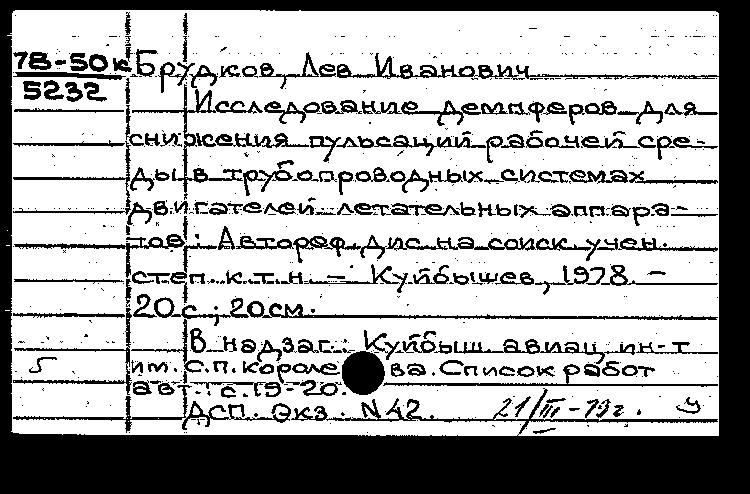 78-50к Брудков, Лев Иванович
5232
Исследование демпферов для
снижения пульсаций рабочей сре-
ды в трубопроводных системах
двигателей летательных аппара-
тов : Автореф. дис. на соиск. учен.
степ. к. т. н. - Куйбышев, 1978. -
20 с ; 20 см.
В надзаг.: Куйбыш. авиац. ин-т
им. С.П. Короле ва. Список работ
авт.: с. 19-20.
ДСП. Экз. N 42. 21/III-79г.